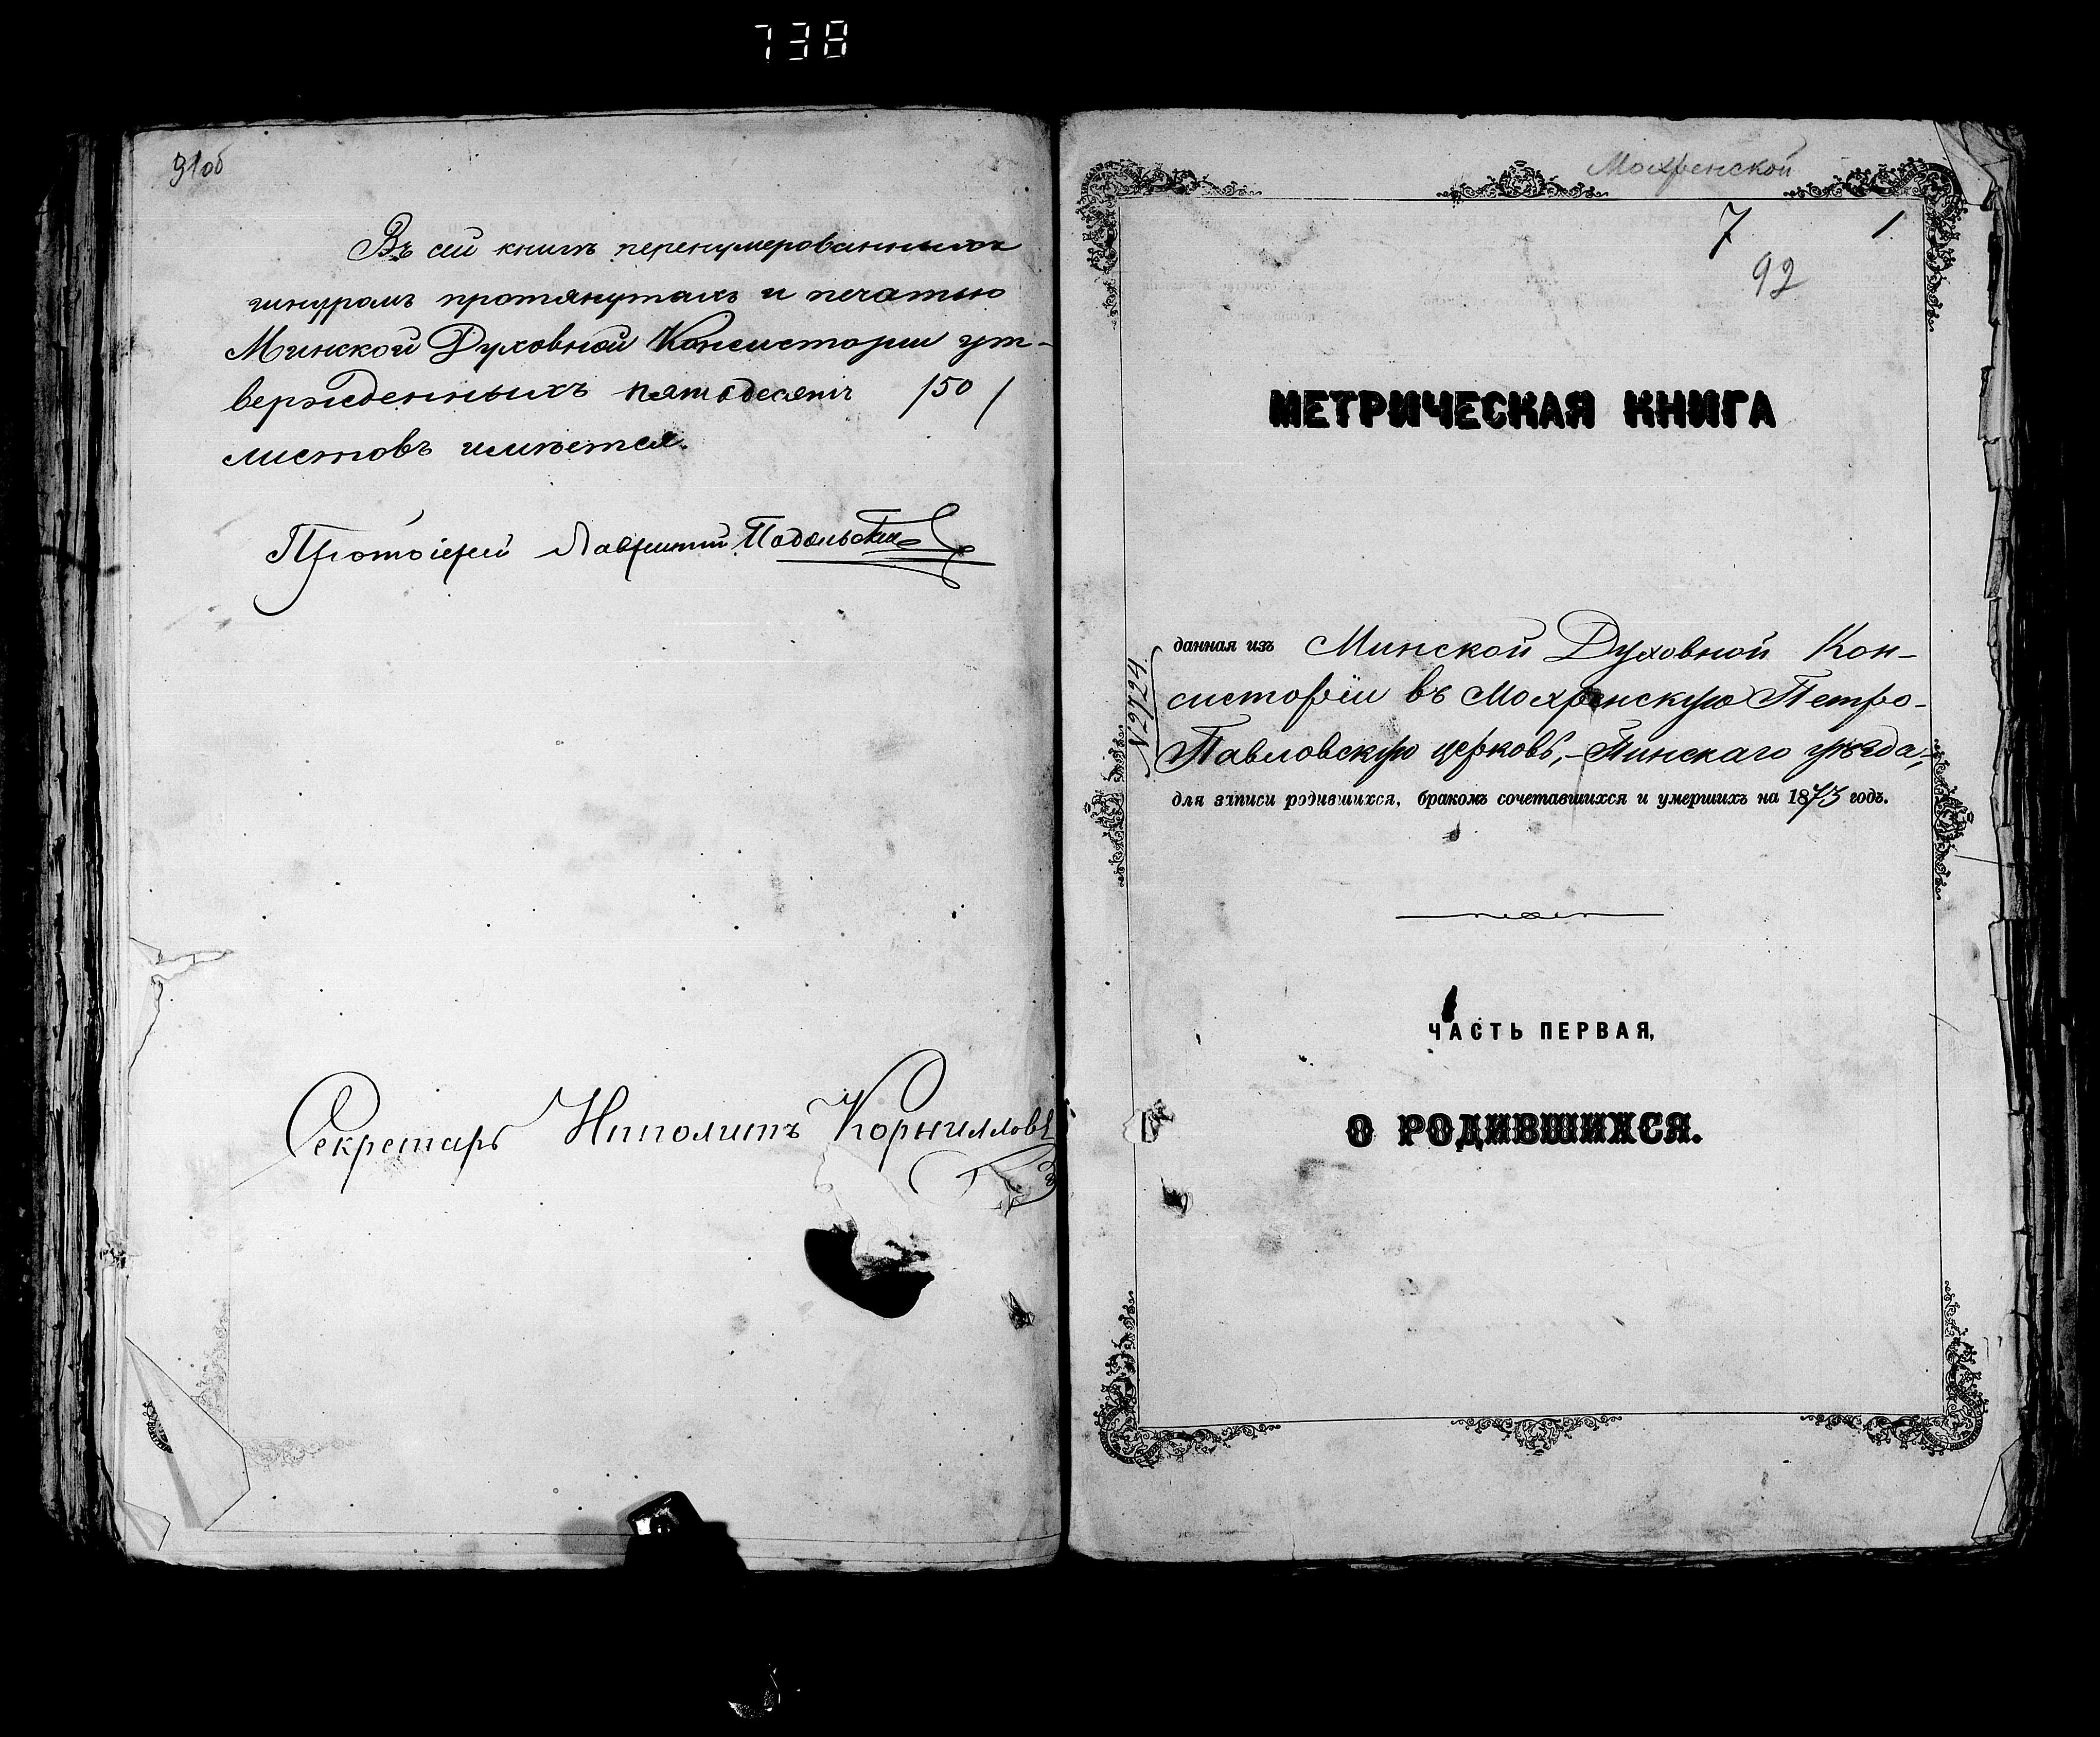 738
91об
Въ сей книгѣ перенумерованныхъ
шнуромъ протянутыхъ и печатью
Минской Духовной Консисторіи ут-
вержденныхъ пятьдесятъ /50/
листовъ имѣется.
Протоіерей Лаврентій Подольскій
Секретарь Ипполитъ Корниловъ
Мохренской
7 1
92
МЕТРИЧЕСКАЯ КНИГА
№ 2724
данная изъ Минской Духовной Кон-
систоріи въ Мохренскую Петро-
Павловскую церковь, - Пинскаго уѣзда,
для записи родившихся, бракомъ сочетавшихся и умершихъ на 1873 годъ.
ЧАСТЬ ПЕРВАЯ,
О РОДИВШИХСЯ.